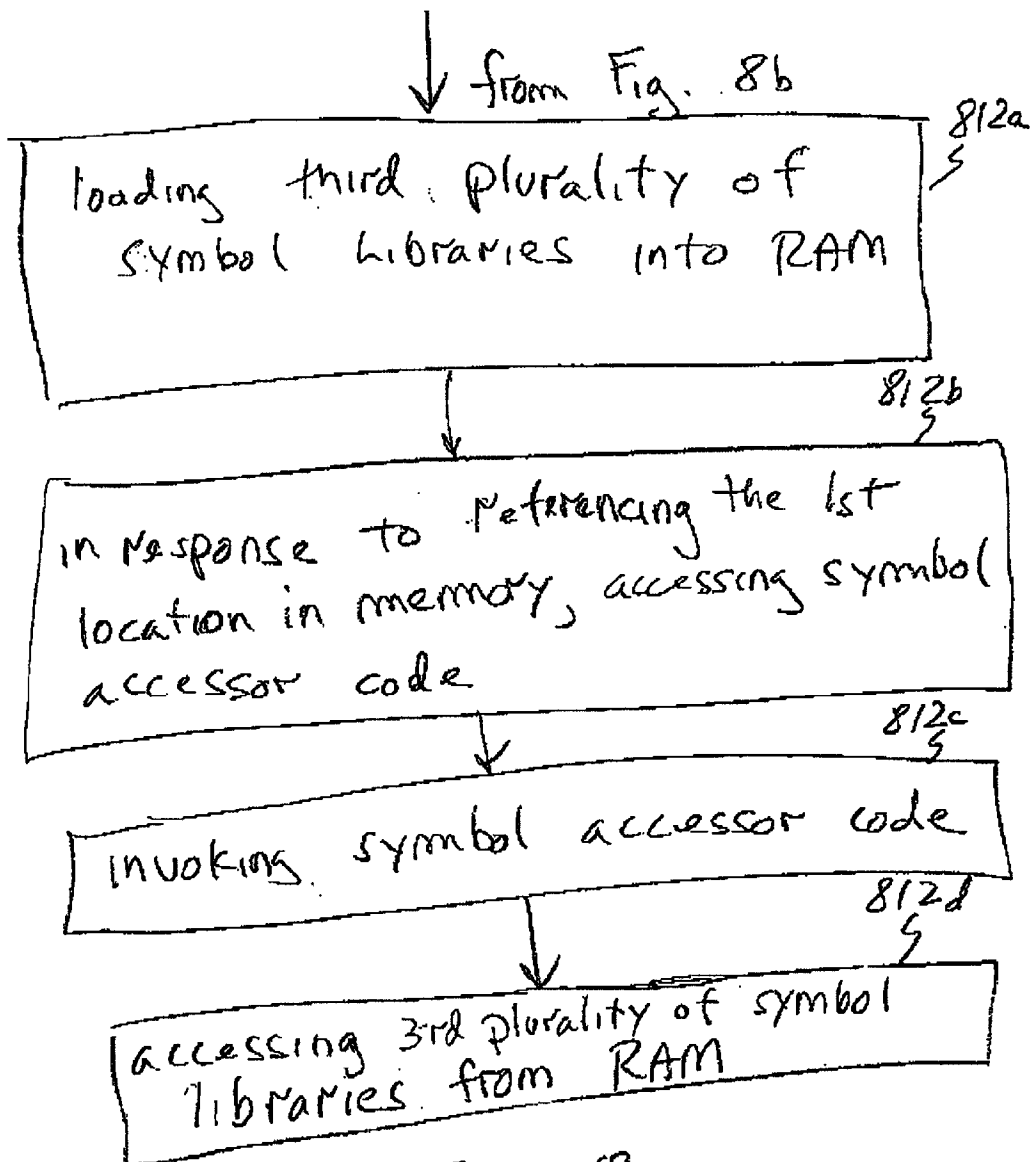 from Fig. 8b
812a
loading third plurality of
symbol Libraries into RAM
812b
in response to referencing the 1st
location in memory, accessing symbol
accessor code
812c
invoking symbol accessor code
812d
accessing 3rd plurality of symbol
libraries from RAM